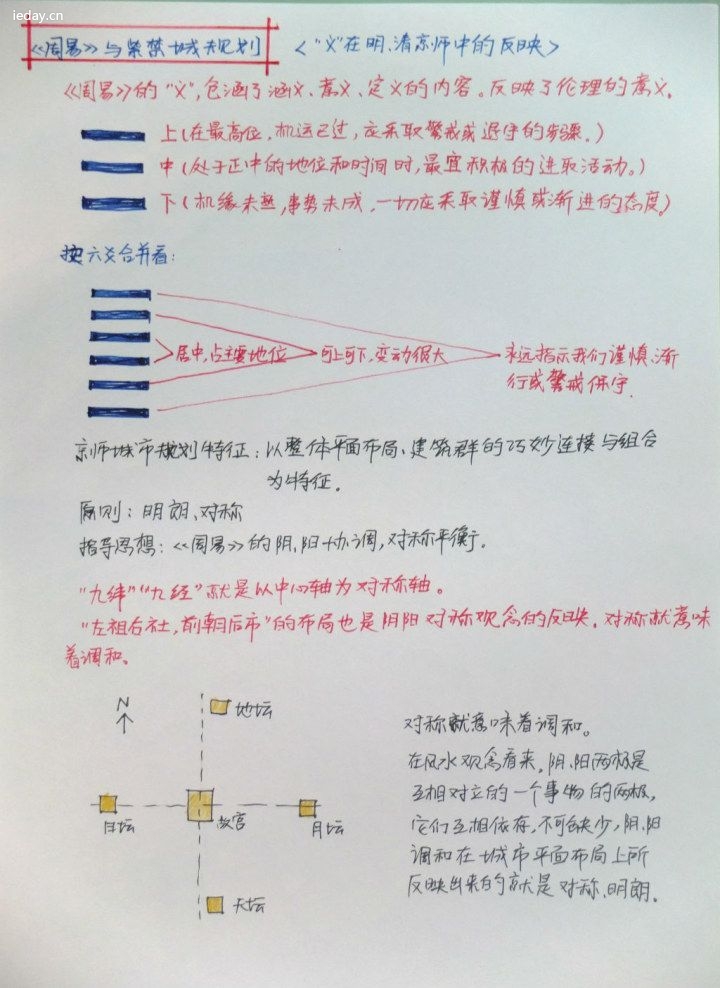 ieday.cn
《周易》与紫禁城规划 <"义"在明、清京师中的反映>
《周易》的"义",包涵了涵义、意义、定义的内容。反映了伦理的意义。
上(在最高位,机运已过,应采取警戒或退守的步骤。)
中(处于正中的地位和时间时,最宜积极的进取活动。)
下(机缘未熟,事势未成,一切应采取谨慎或渐进的态度)
按六爻合并看:
居中,占主要地位 可上可下,变动很大 永远指示我们谨慎、渐
行或警戒保守.
京师城市规划特征:以整体平面布局、建筑群的巧妙连接与组合
为特征。
原则:明朗、对称
指导思想:《周易》的阴、阳协调,对称平衡。
"九纬""九经"就是以中心轴为对称轴。
"左祖右社,前朝后市"的布局也是阴阳对称观念的反映.对称就意味
着调和。
N
地坛
日坛 故宫 月坛
天坛
对称就意味着调和。
在风水观念看来,阴、阳两极是
互相对立的一个事物的两极,
它们互相依存,不可缺少,阴、阳
调和在城市平面布局上所
反映出来的就是对称、明朗。